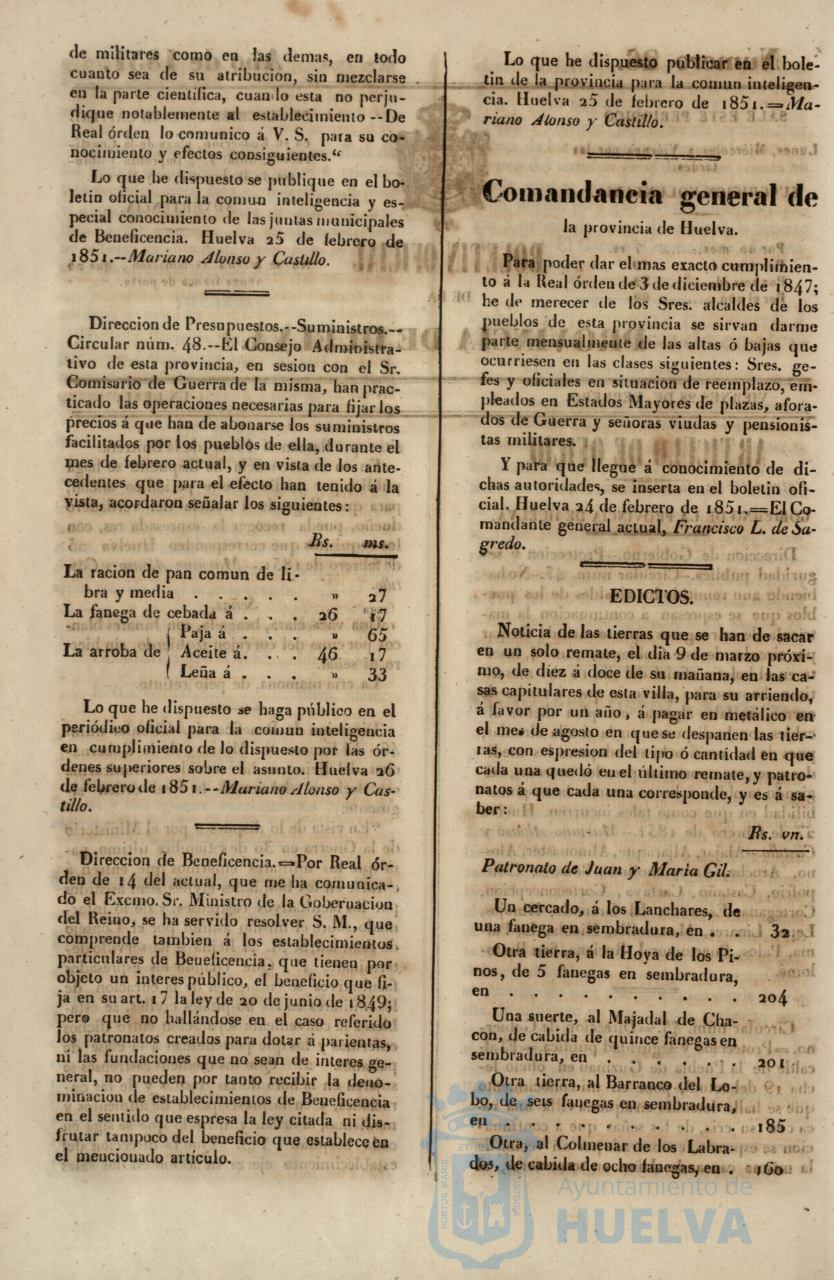 de militares como en las demas, en todo
cuanto sea de su atribucion, sin mezclarse
en la parte cientifica, cuando esta no perju-
dique notablemente al establecimiento--De
Real órden lo comunico á V. S. para su co-
nocimiento y efectos consiguientes.“
Lo que he dispuesto se publique en el bo-
letin oficial para la comun inteligencia y es-
pecial conocimiento de las juntas municipales
de Beneficencia. Huelva 25 de febrero de
1851.--Mariano Alonso y Castillo.
Direccion de Presupuestos.--Suministros.--
Circular núm. 48.--El Consejo Administra-
tivo de esta provincia, en sesion con el Sr.
Comisario de Guerra de la misma, han prac-
ticado las operaciones necesarias para fijar los
precios á que han de abonarse los suministros
facilitados por los pueblos de ella, durante el
mes de febrero actual, y en vista de los ante-
cedentes que para el efecto han tenido á la
vista, acordaron señalar los siguientes:
Rs. ms.
La racion de pan comun de li-
bra y media . . . . . » 27
La fanega de cebada á . . . 26 17
Paja á . . . » 65
La arroba de Aceite á. . . 46 17
Leña á . . . » 33
Lo que he dispuesto se haga público en el
periódico oficial para la comun inteligencia
en cumplimiento de lo dispuesto por las ór-
denes superiores sobre el asunto. Huelva 26
de febrero de 1851.--Mariano Alonso y Cas-
tillo.
Direccion de Beneficencia.=Por Real ór-
den de 14 del actual, que me ha comunica-
do el Excmo. Sr. Ministro de la Gobernacion
del Reino, se ha servido resolver S. M., que
comprende tambien á los establecimientos
particulares de Beneficencia, que tienen por
objeto un interes público, el beneficio que fi-
ja en su art. 17 la ley de 20 de junio de 1849;
pero que no hallándose en el caso referido
los patronatos creados para dotar á parientas,
ni las fundaciones que no sean de interes ge-
neral, no pueden por tanto recibir la deno-
minacion de establecimientos de Beneficencia
en el sentido que espresa la ley citada ni dis-
frutar tampoco del beneficio que establece en
el mencionado artículo.
Lo que he dispuesto publicar en el bole-
tin de la provincia para la comun inteligen-
cia. Huelva 25 de febrero de 1851.=Ma-
riano Alonso y Castillo.
Comandancia general de
la provincia de Huelva.
Para poder dar el mas exacto cumplimien-
to á la Real órden de 3 de diciembre de 1847;
he de merecer de los Sres. alcaldes de los
pueblos de esta provincia se sirvan darme
parte mensualmente de las altas ó bajas que
ocurriesen en las clases siguientes: Sres. ge-
fes y oficiales en situacion de reemplazo, em-
pleados en Estados Mayores de plazas, afora-
dos de Guerra y señoras viudas y pensionis-
tas militares.
Y para que llegue á conocimiento de di-
chas autoridades, se inserta en el boletin ofi-
cial. Huelva 24 de febrero de 1851.=El Co-
mandante general actual, Francisco L. de Sa-
gredo.
EDICTOS.
Noticia de las tierras que se han de sacar
en un solo remate, el dia 9 de marzo próxi-
mo, de diez á doce de su mañana, en las ca-
sas capitulares de esta villa, para su arriendo,
á favor por un año, á pagar en metálico en
el mes de agosto en que se despanen las tier-
ras, con espresion del tipo ó cantidad en que
cada una quedó en el último remate, y patro-
natos á que cada una corresponde, y es á sa-
ber:
Rs. vn.
Patronato de Juan y Maria Gil.
Un cercado, á los Lanchares, de
una fanega en sembradura, en . . 32
Otra tierra, á la Hoya de los Pi-
nos, de 5 fanegas en sembradura,
en . . . . . . . . . . 204
Una suerte, al Majadal de Cha-
con, de cabida de quince fanegas en
sembradura, en . . . . . . 201
Otra tierra, al Barranco del Lo-
bo, de seis fanegas en sembradura,
en . . . . . . . . . . 185
Otra, al Colmenar de los Labra-
dos, de cabida de ocho fanegas, en . 160
PORTUS MARIS
Ayuntamiento de
HUELVA